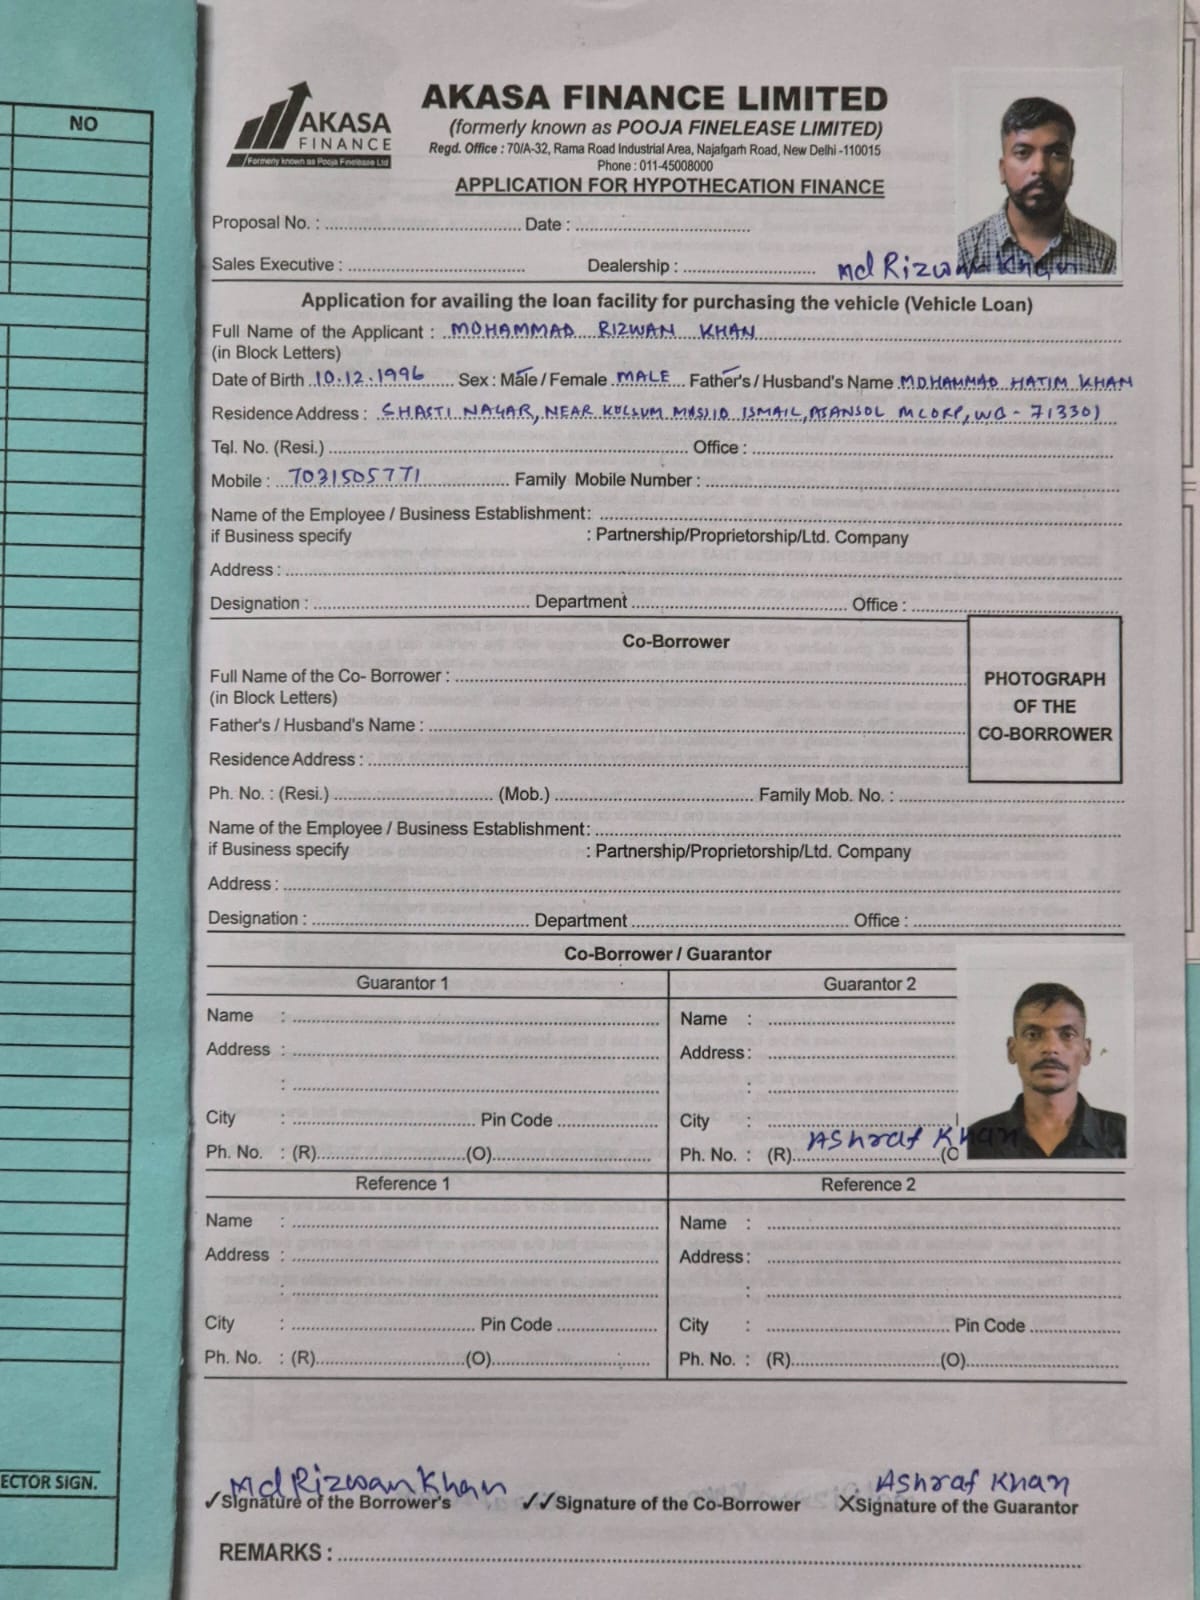 NO
AKASA
FINANCE
Formerly known as Pooja Finelease Ltd
AKASA FINANCE LIMITED
(formerly known as POOJA FINELEASE LIMITED)
Regd. Office : 70/A-32, Rama Road Industrial Area, Najafgarh Road, New Delhi -110015
Phone : 011-45008000
APPLICATION FOR HYPOTHECATION FINANCE
Proposal No. : Date :
Sales Executive : Dealership : Md Rizwan Khan
Application for availing the loan facility for purchasing the vehicle (Vehicle Loan)
Full Name of the Applicant : MOHAMMAD RIZWAN KHAN
(in Block Letters)
Date of Birth 10.12.1996 Sex : Male / Female MALE Father's / Husband's Name MOHAMMAD HATIM KHAN
Residence Address : SHASTI NAGAR, NEAR KULSUM MASJID ISMAIL, ASANSOL MCORP, WB - 713301
Tel. No. (Resi.) Office :
Mobile : 7031505771 Family Mobile Number :
Name of the Employee / Business Establishment:
if Business specify : Partnership/Proprietorship/Ltd. Company
Address :
Designation : Department Office :
Co-Borrower
Full Name of the Co- Borrower :
(in Block Letters)
Father's / Husband's Name :
Residence Address :
PHOTOGRAPH
OF THE
CO-BORROWER
Ph. No. : (Resi.) (Mob.) Family Mob. No. :
Name of the Employee / Business Establishment:
if Business specify : Partnership/Proprietorship/Ltd. Company
Address :
Designation : Department Office :
Co-Borrower / Guarantor
Guarantor 1 Guarantor 2
Name : Name :
Address : Address :
: :
City : Pin Code City :
Ashraf Khan
Ph. No. : (R) (O) Ph. No. : (R) (O
Reference 1 Reference 2
Name : Name :
Address : Address :
: :
City : Pin Code City : Pin Code
Ph. No. : (R) (O) Ph. No. : (R) (O)
ECTOR SIGN.
Md Rizwan Khan Ashraf Khan
✓Signature of the Borrower's ✓✓Signature of the Co-Borrower XSignature of the Guarantor
REMARKS :